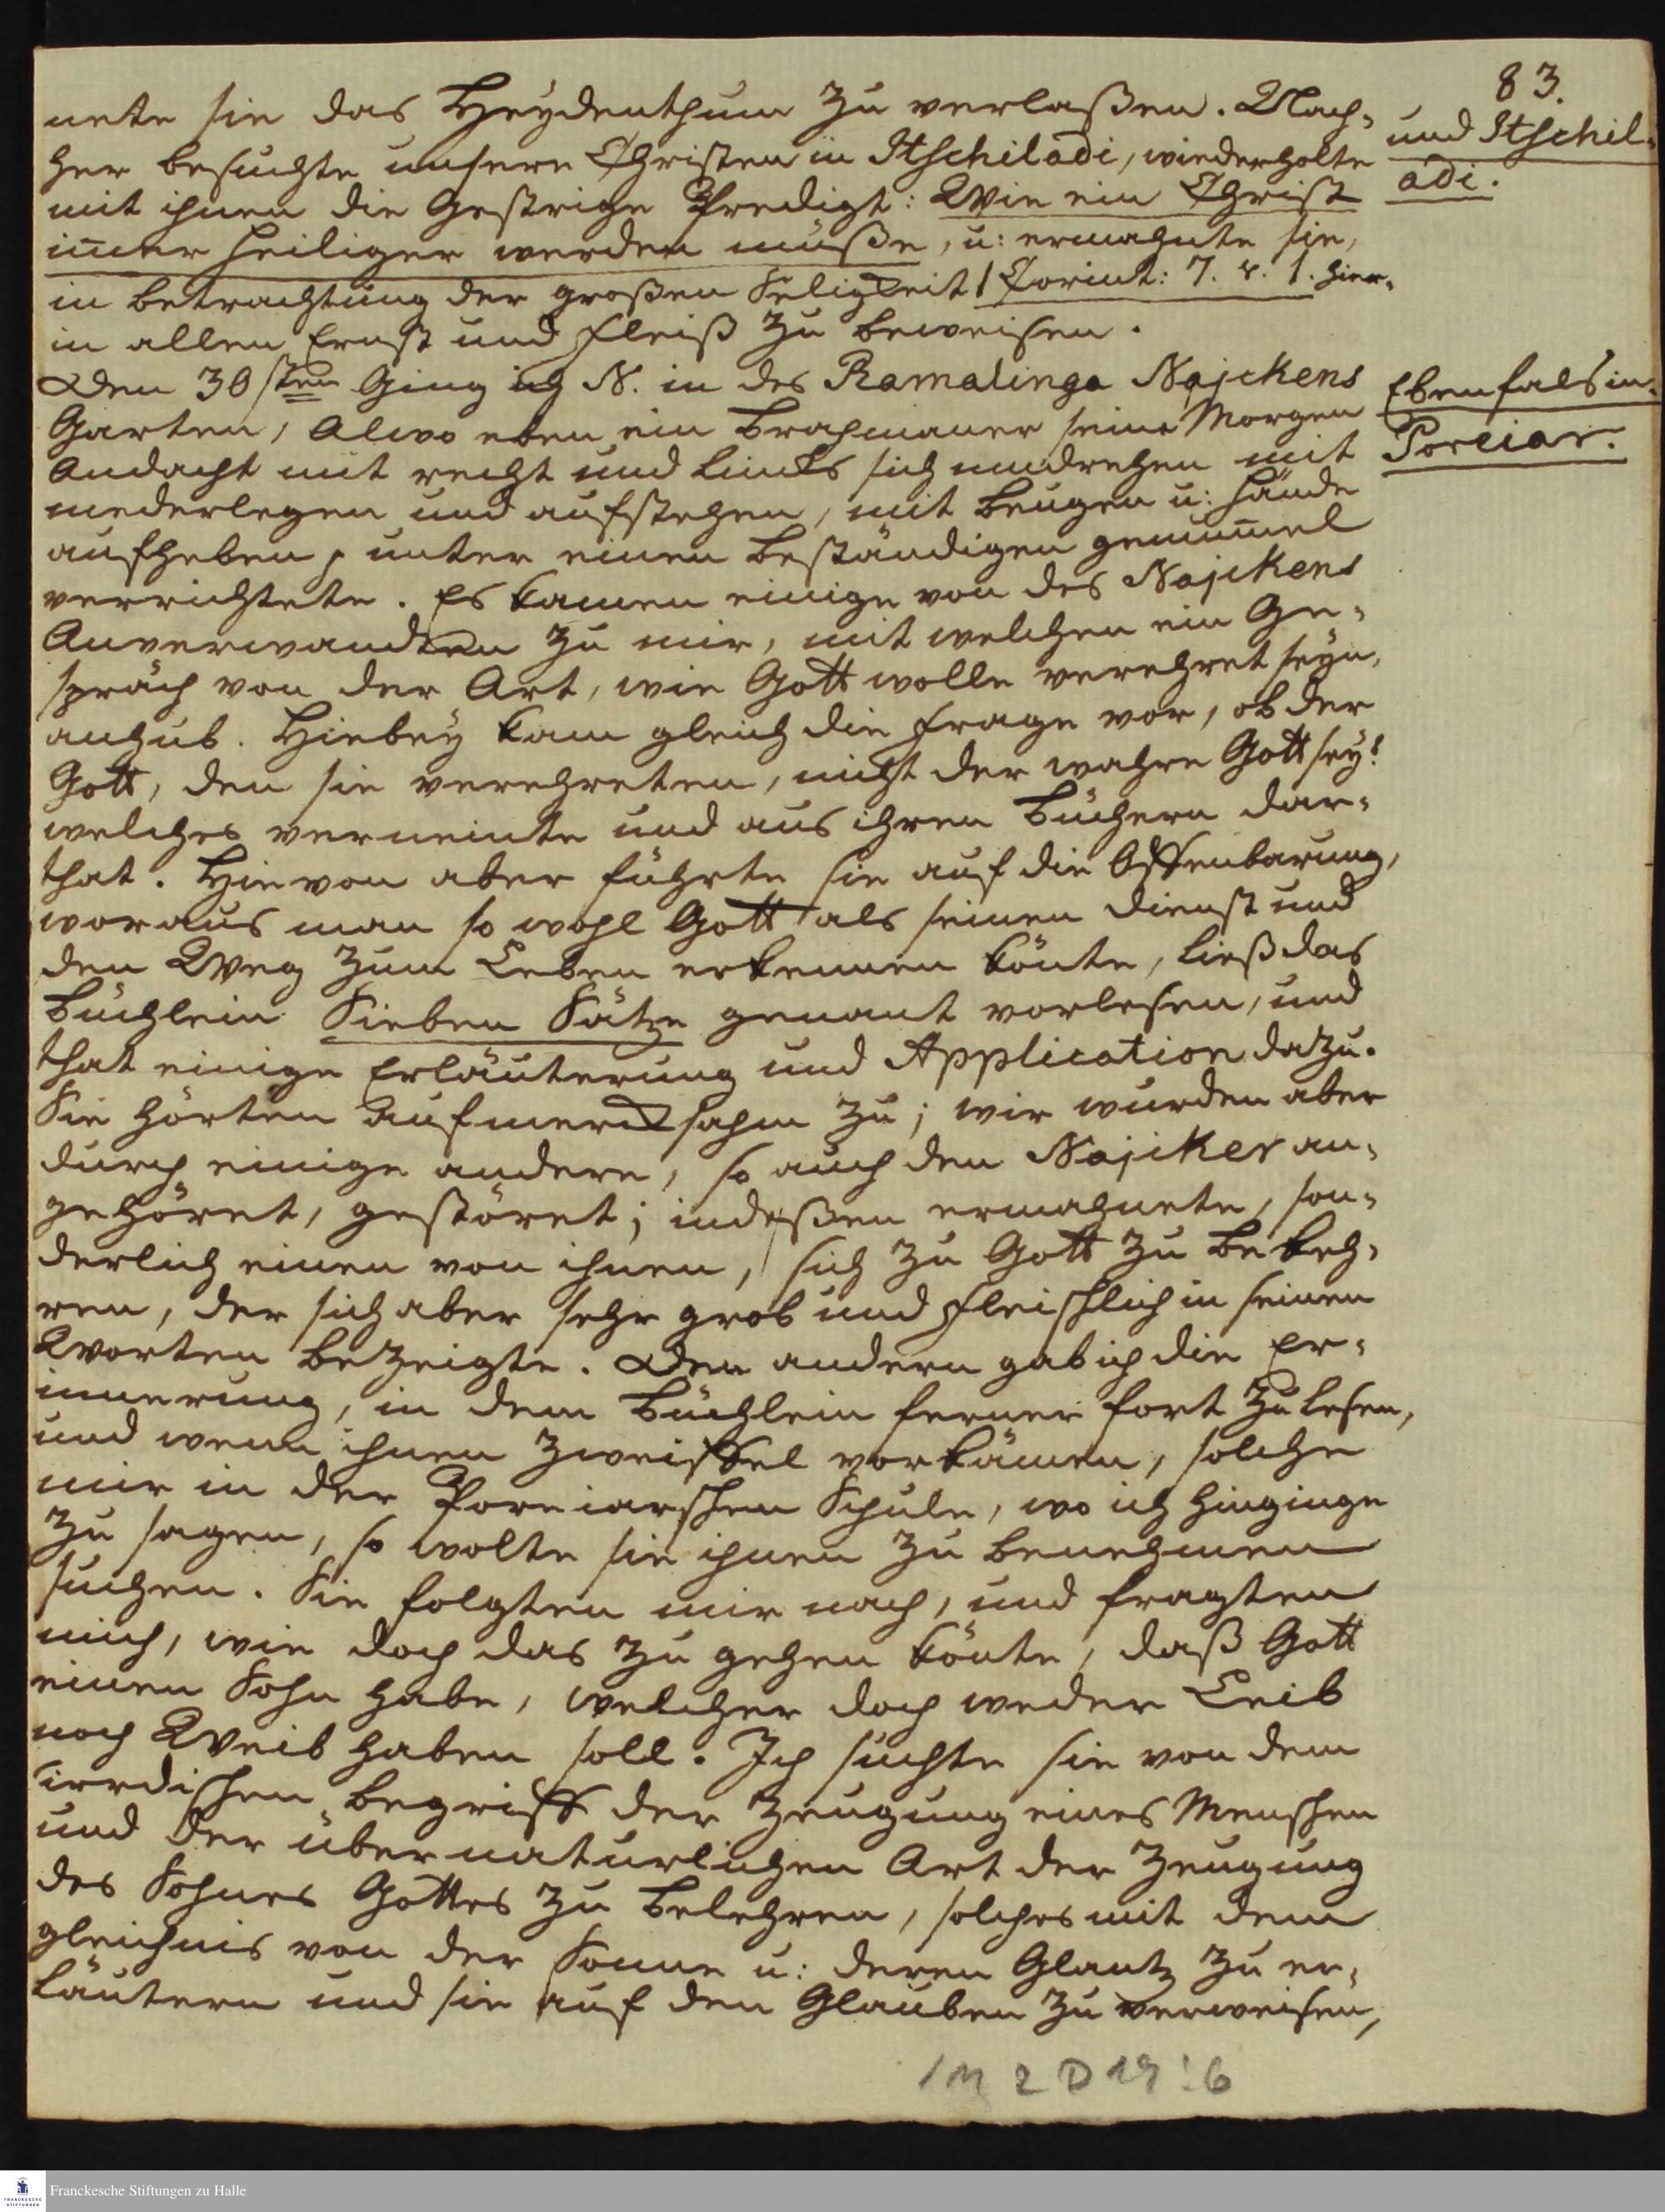 83.
nete sie das Heydenthum zu verlaßen. Nach-
her besuchte unsere Christen in Itschiladi, wiederholte
mit ihnen die Gestrige Predigt: Wie ein Christ
im̄er heiliger werden müße, u: ermahnte sie,
in betrachtung der großen Seligkeit 1 Corint: 7. v. 1. hier-
in allen Ernst und Fleiß zu beweisen.
und Itschil-
adi.
Den 30sten Ging ich N. in des Ramalinga Najckens
Garten, Alwo eben ein Brahmaner seine Morgen
Andacht mit recht und Lincks sich umdrehen mit
niederlegen und aufstehen, mit beugen u: Hände
aufheben, unter einen beständigen gemum̄el
verrichtete. Es kamen einige von des Najckens
Anverwandten zu mir, mit welchen ein Ge-
spräch von der Art, wie Gott wolle verehret seyn,
anhub. Hiebey kam gleich die Frage vor, ob der
Gott, den sie verehreten, nicht der wahre Gott sey?
welches verneinte und aus ihren Büchern dar-
that. Hievon aber führte sie auf die Offenbarung,
woraus man so wohl Gott als seinen Dienst und
den Weg zum Leben erkennen könte, ließ das
Büchlein Sieben Sätze genant vorlesen, und
that einige Erläuterung und Application dazu.
Sie hörten aufmercksahm zu; wir wurden aber
durch einige andere, so auch den Najcker an-
gehöret, gestöret; indeßen ermahnete, son-
derlich einen von ihnen, sich zu Gott zu bekeh-
ren, der sich aber sehr grob und fleischlich in seinen
Worten bezeigte. Den andern gab ich die Er-
innerung, in dem Büchlein ferner fort zu lesen,
und wenn ihnen Zweiffel vorkämen, solche
mir in der Poreiarschen Schule, wo ich hinginge
zu sagen, so wolte sie ihnen zu benehmen
suchen. Sie folgten mir nach, und fragten
mich, wie doch das zu gehen könte, daß Gott
einen Sohn habe, welcher doch weder Leib
noch Weib haben soll. Ich suchte sie von dem
irrdischen begriff der Zeugung eines Menschen
und der übernatürlichen Art der Zeugung
des Sohnes Gottes zu belehren, solches mit dem
gleichnis von der Sonne u: deren Glantz zu er-
läutern und sie auf den Glauben zu verweisen,
Ebenfals in
Poreiar.
1M 2 D 19:6
FRANCKESCHE
STIFTUNGEN
Franckesche Stiftungen zu Halle